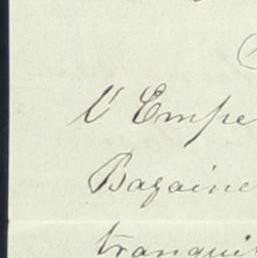 l'Empe
Bazaine
tranqui